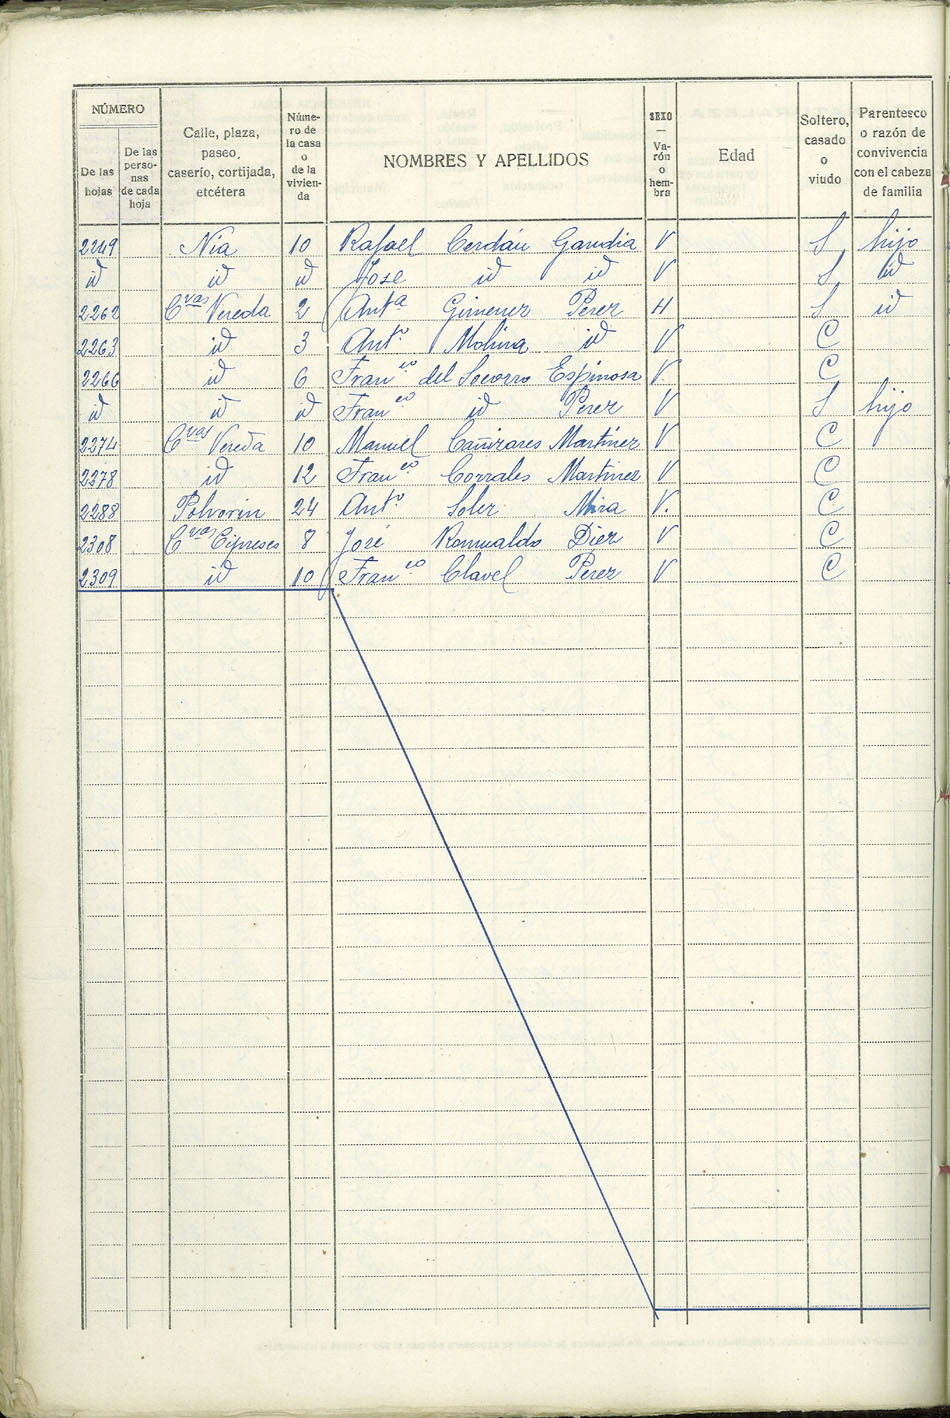 NÚMERO
De las hojas
De las perso-nas de cada hoja
Calle, plaza, paseo, caserío, cortijada, etcétera
Núme-ro de la casa o de la vivien-da
NOMBRES Y APELLIDOS
SEXO — Va-rón o hem-bra
Edad
Soltero, casado o viudo
Parentesco o razón de convivencia con el cabeza de familia
2249 Nía 10 Rafael Cerdán Gandia V S hijo
id id id Jose id id V S id
2262 Cvas Vereda 2 Anta Gimenez Perez H S id
2263 id 3 Anto Molina id V C
2266 id 6 Franco del Socorro Espinosa V. C
id id id Franco id Perez V S hijo
2274 Cvas Vereda 10 Manuel Cañizares Martinez V C
2278 id 12 Franco Corrales Martinez V C
2288 Polvorin 24 Anto Soler Mira V. C
2308 Cvas Cipreses 8 José Romualdo Diez V C
2309 id 10 Franco Clavel Perez V C